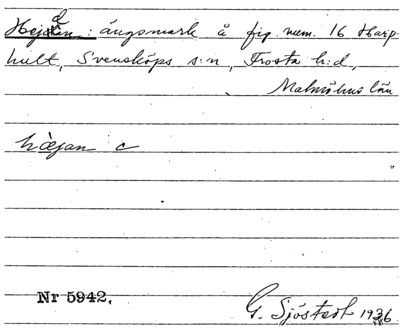 Hejdan: ängsmark å fig. num. 16 Harphult, Svensköps s:n, Frosta h:d,
Malmöhus län
hæjan c
Nr 5942.
G. Sjöstedt 1936